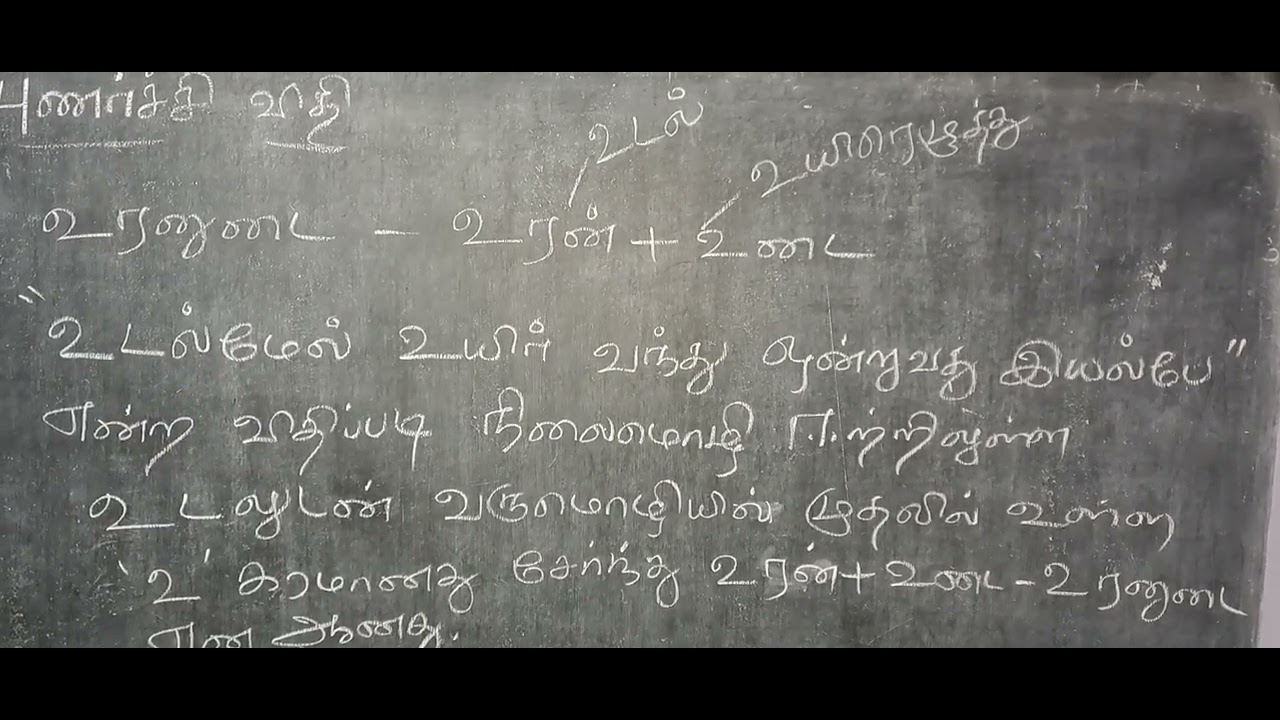 புணர்ச்சி விதி
உடல்
உயிரெழுத்து
உரனுடை – உரன் + உடை
"உடல்மேல் உயிர் வந்து ஒன்றுவது இயல்பே"
என்ற விதிப்படி நிலைமொழி ஈற்றிலுள்ள
உடலுடன் வருமொழியின் முதலில் உள்ள
'உ' கரமானது சேர்ந்து உரன் + உடை – உரனுடை
என ஆனது.